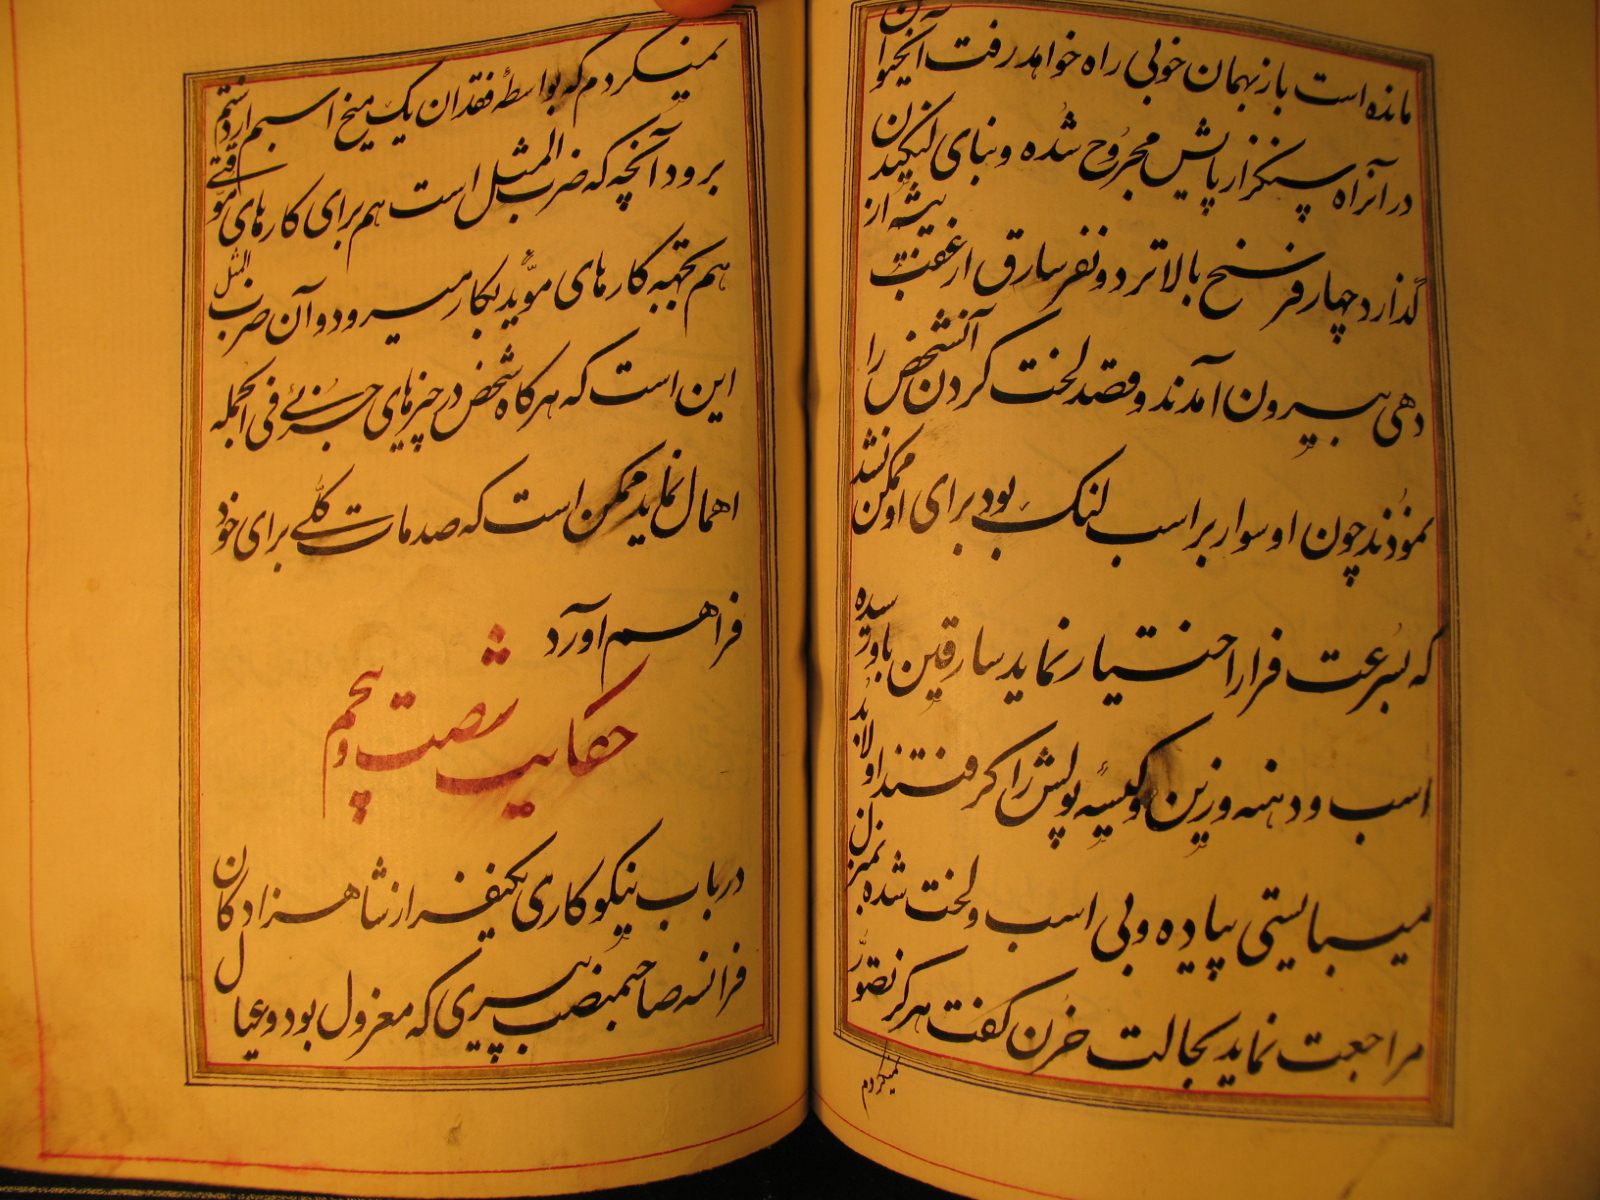 مانده است باز بهمان خوبی راه خواهد رفت آنحیوان
در آنراه سنگزار پایش مجروح شده و بنای لنگیدن
گذارد چهار فرسخ بالاتر دو نفر سارق از عقب بیشه از
دهی بیرون آمدند و قصد لخت کردن آنشخص را
نمودند چون او سوار بر اسب لنگ بود برای او ممکن نشد
که بسرعت فرار اختیار نماید سارقین باو رسیده
اسب و دهنه و زین و کیسه پولش را گرفتند او لابد
میبایستی پیاده و بی اسب و لخت شده بمنزل
مراجعت نماید بحالت حزن گفت هرگز تصور
نمیکردم
نمیکردم که بواسطه فقدان یک میخ اسبم از دستم
برود آنچه که ضرب المثل است هم برای کارهای موقتی
هم بجهة کارهای مؤید بکار میرود و آن ضرب المثل
این است که هرگاه شخص در چیزهای جزئی فی الجمله
اهمال نماید ممکن است که صدمات کلی برای خود
فراهم اورد
حکایت شصت و پنجم
در باب نیکوکاری یکنفر از شاهزادگان
فرانسه صاحبمنصب پیری که معزول بود و عیال